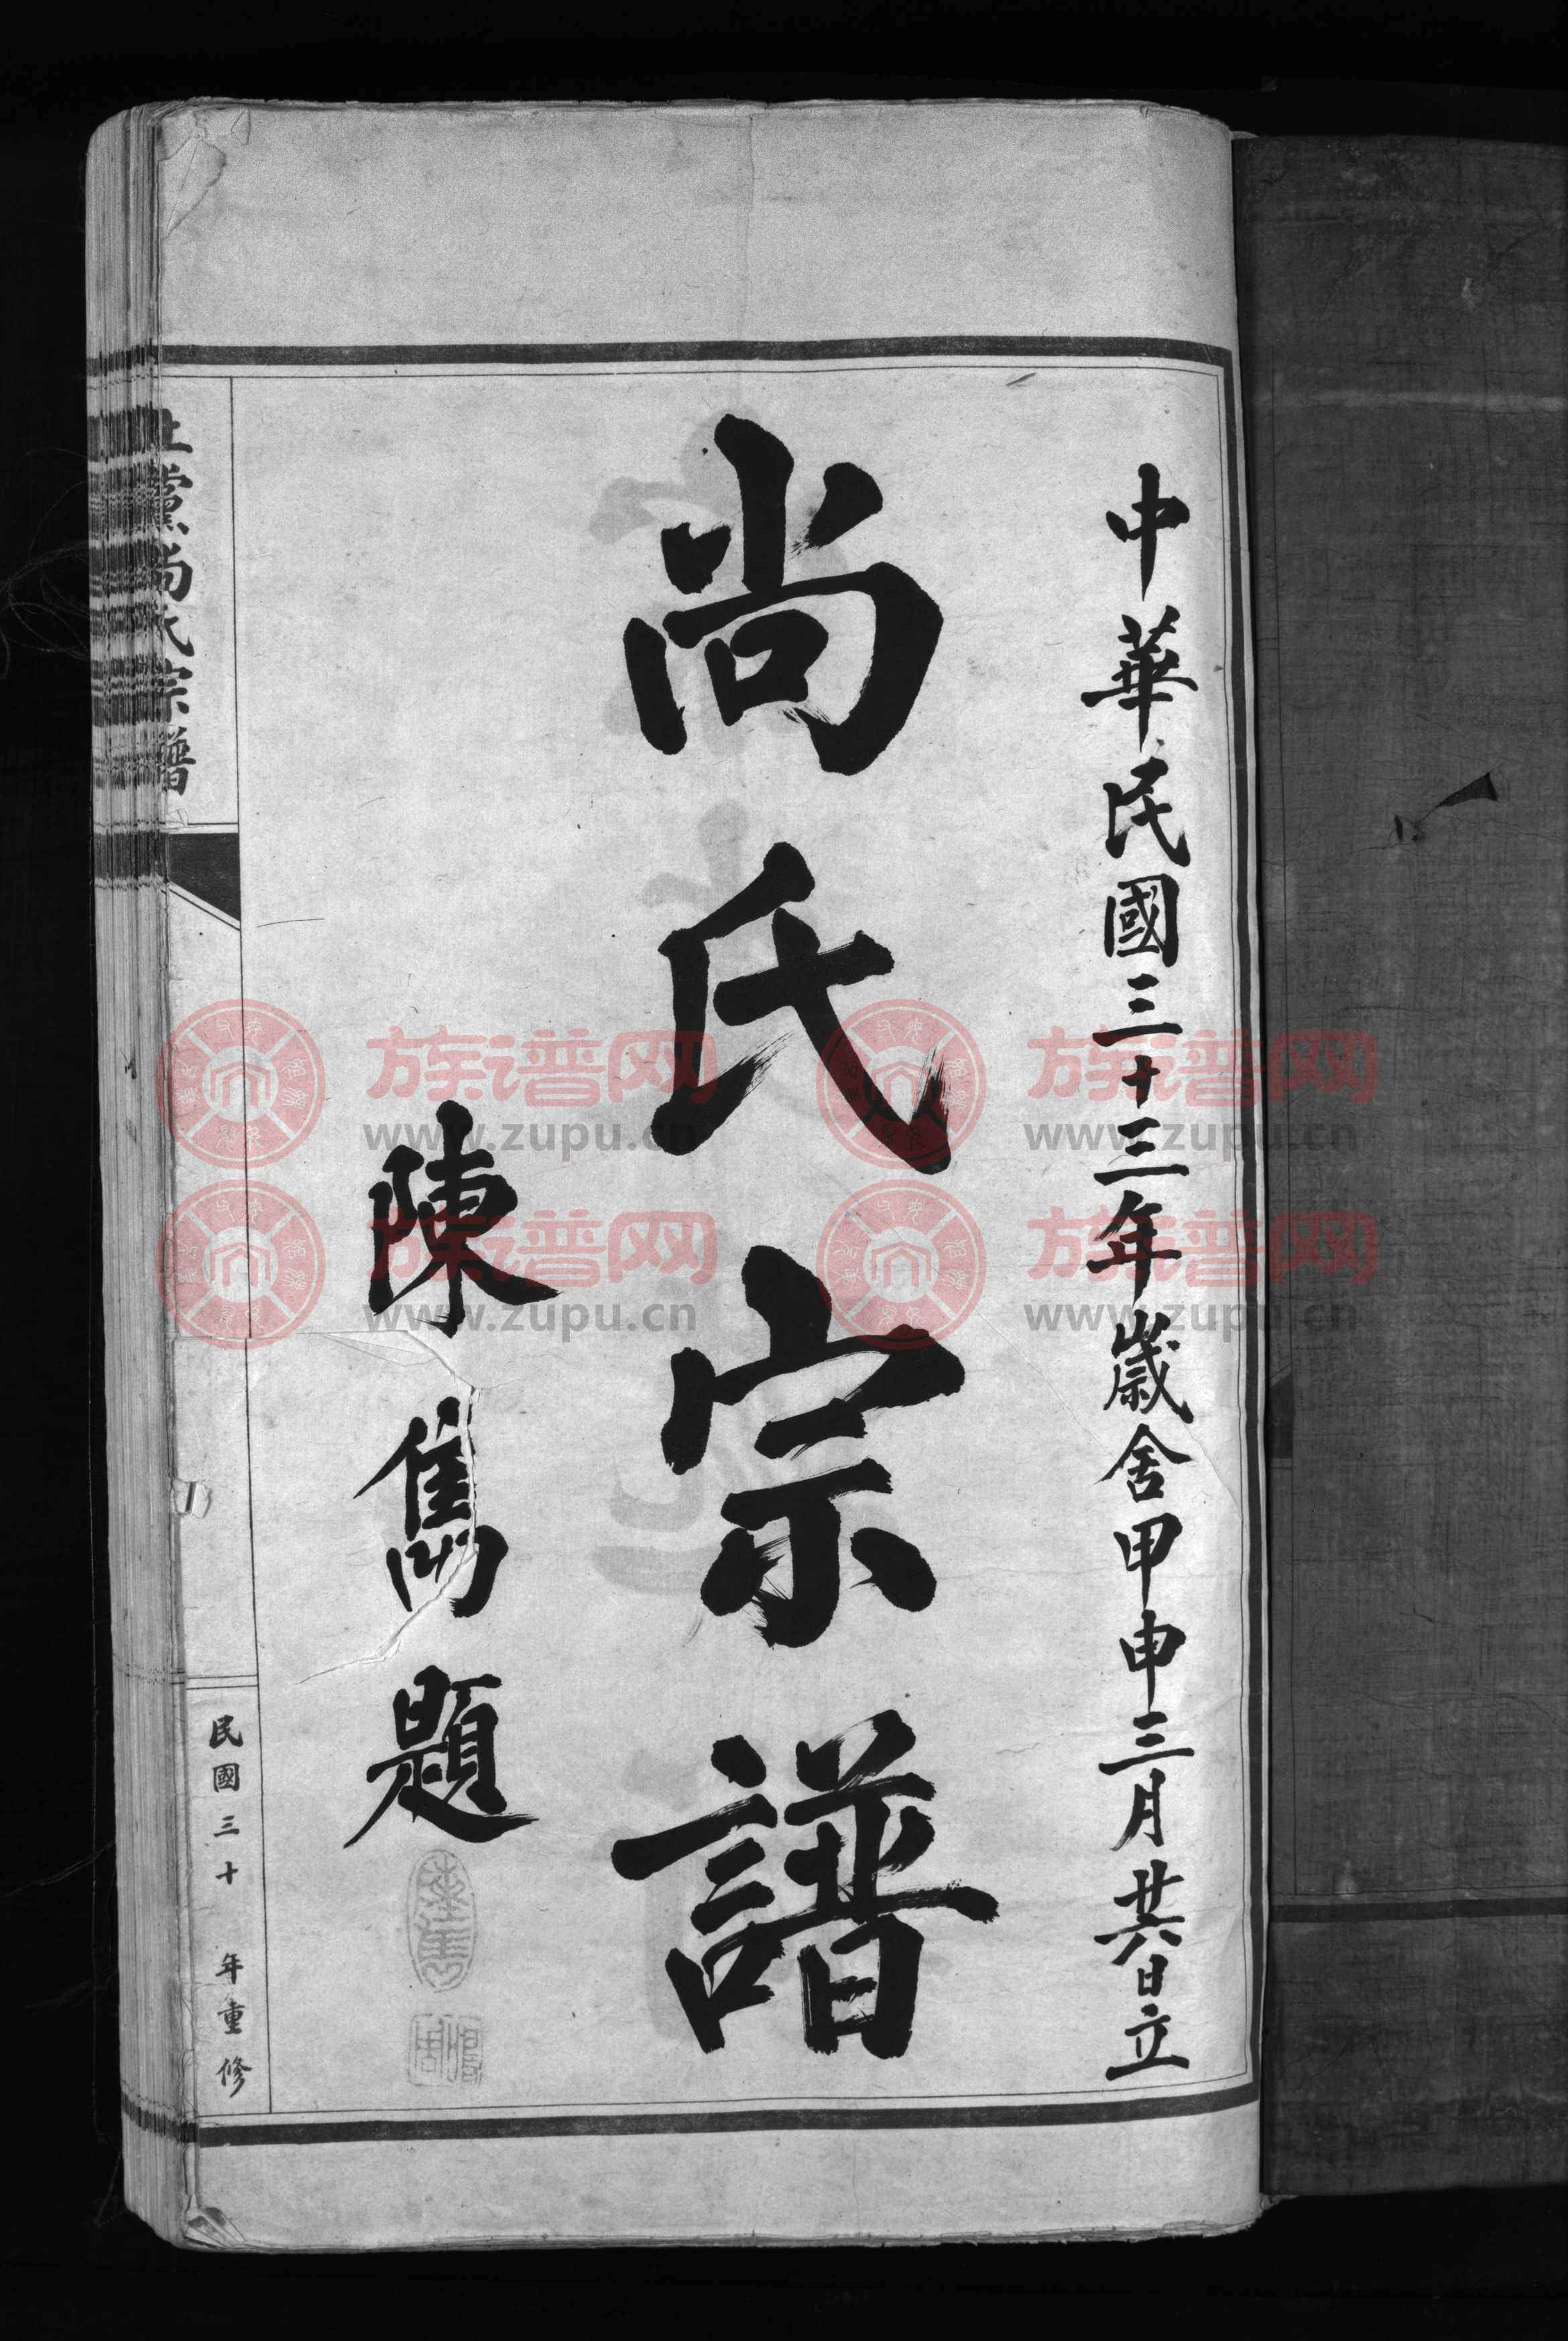 中華民國三十三年歲舍甲申三月廿六日立
尚氏宗譜
陳雋題
黨尚氏宗譜
民國三十 年重修
族谱网 族谱网
www.zupu.cn www.zupu.cn
族谱网 族谱网
www.zupu.cn www.zupu.cn